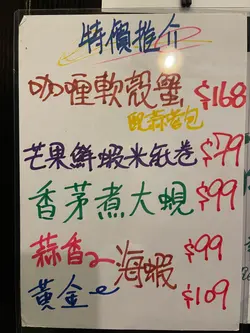 特價推介
咖喱軟殼蟹 $168
配蒜蓉包
芒果鮮蝦米紙卷 $79
香茅煮大蜆 $99
蒜香 $99
海蝦
黃金 $109